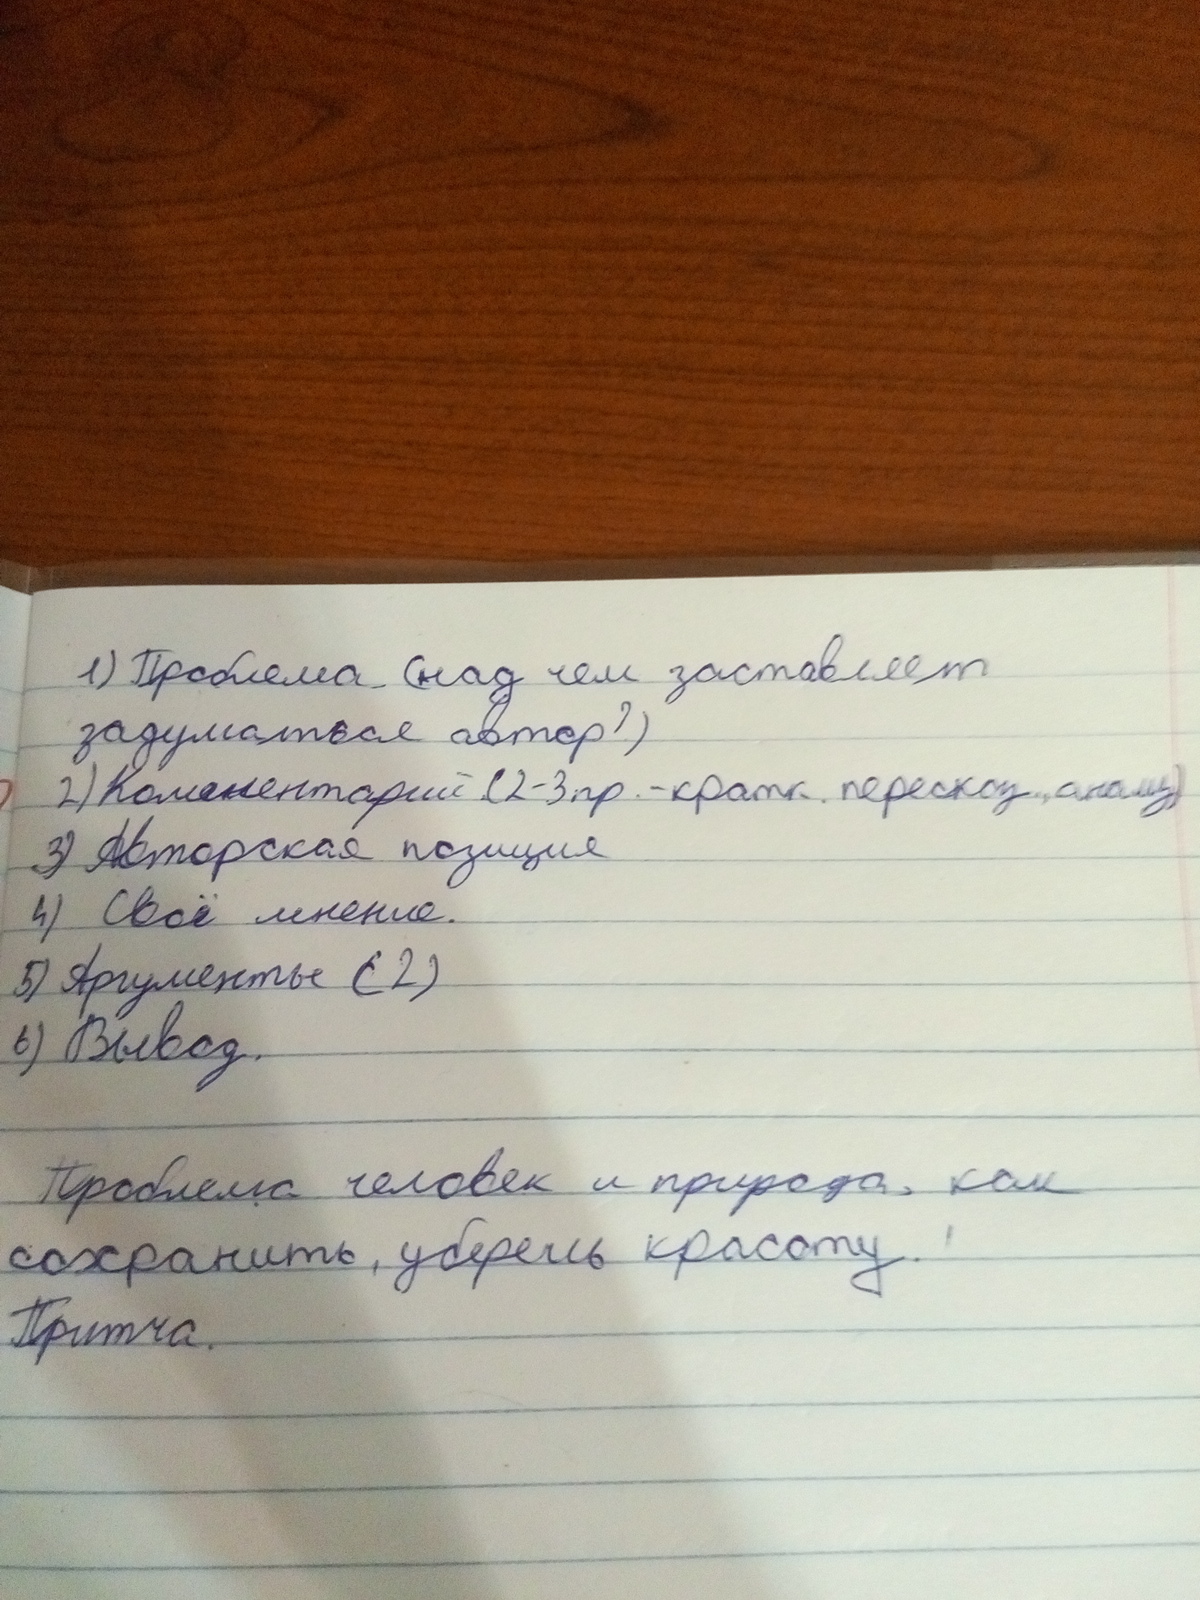 1) Проблема (над чем заставляет
задуматься автор?)
2) Коментарий (2-3 пр. - кратк. пересказ, анализ)
3) Авторская позиция
4) Своё мнение.
5) Аргументы (2)
6) Вывод.
Проблема человек и природа, как
сохранить, уберечь красоту.
Притча.